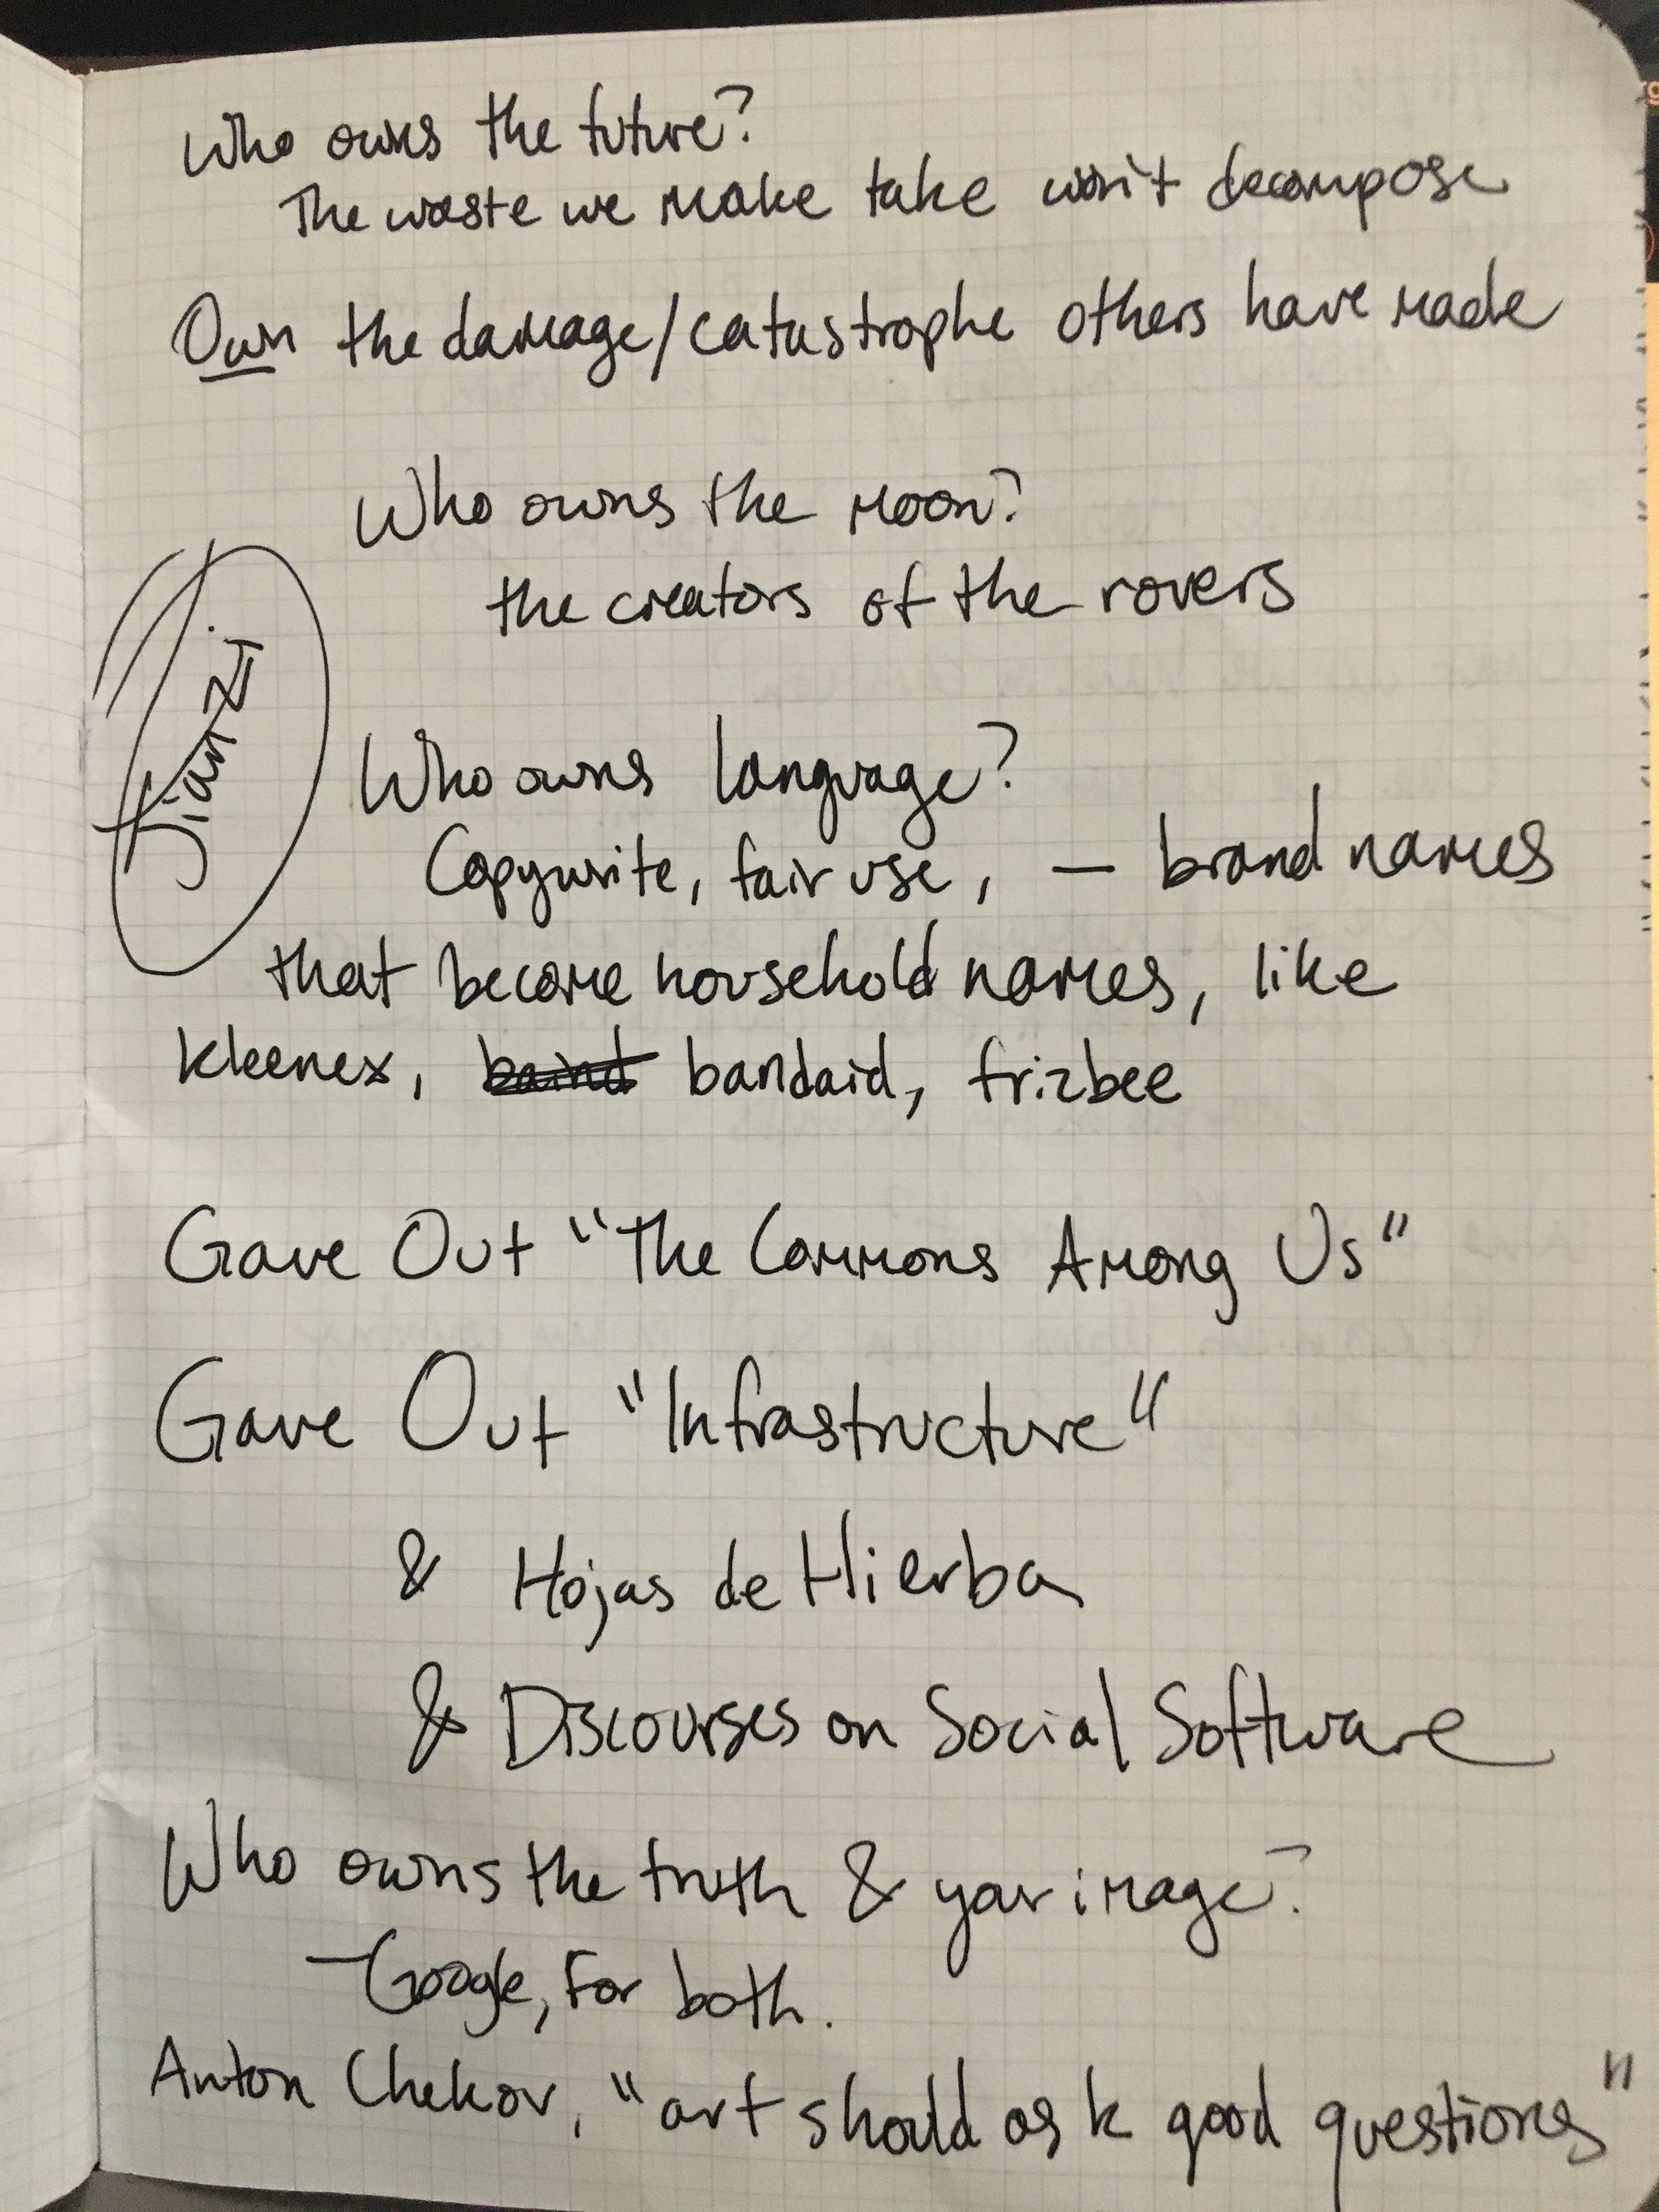 Who owns the future?
The waste we make take won't decompose
Own the damage/catastrophe others have made
Who owns the moon?
the creators of the rovers
Jian Zi
Who owns language?
Copywrite, fair use, — brand names
that become household names, like
kleenex, baind bandaid, frizbee
Gave Out "The Commons Among Us"
Gave Out "Infrastructure"
& Hojas de Hierba
& Discourses on Social Software
Who owns the truth & your image?
—Google, For both.
Anton Chekov, "art should ask good questions"